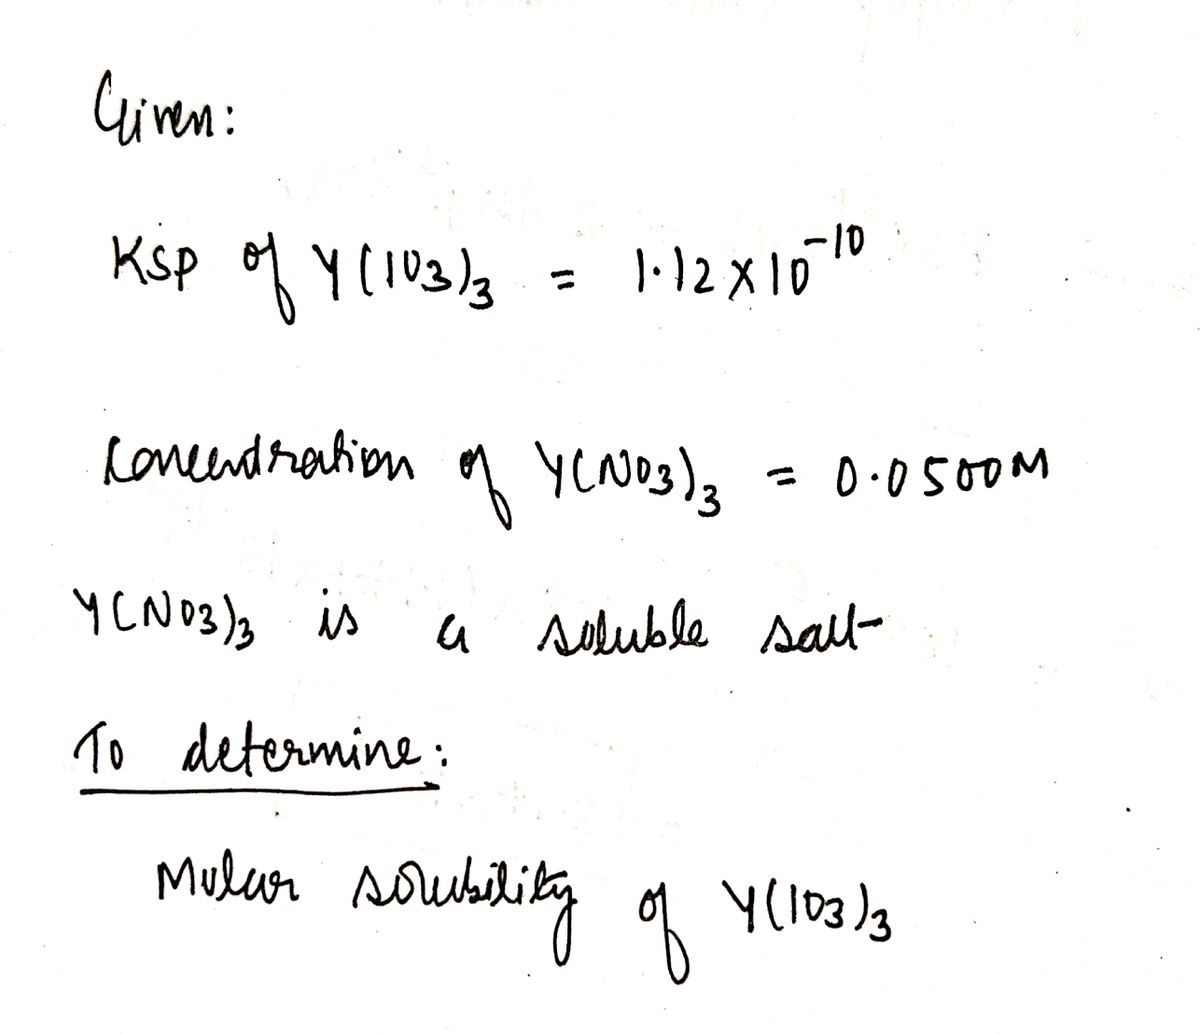 Given:
Ksp of Y(IO3)3 = 1.12 x 10^-10
Concentration of Y(NO3)3 = 0.0500M
Y(NO3)3 is a soluble salt
To determine:
Molar solubility of Y(IO3)3